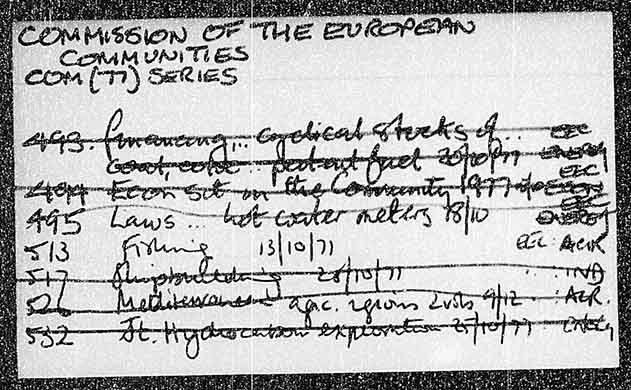 COMMISSION OF THE EUROPEAN
COMMUNITIES
COM (77) SERIES
493. financing... cyclical stocks of... EEC
coal, coke... patent fuel 20/10/77 ENERGY
494 Econ sit in the Community 1977 EEC
495 Laws... hot water meters 18/10 ENERGY
513 Fishing 13/10/77 EEC AGR
517 Shipbuilding 28/10/77 IND
526 Mediterranean agric. regions 2 vols 9/12 AGR.
532 Jt. Hydrocarbon exploration 25/10/77